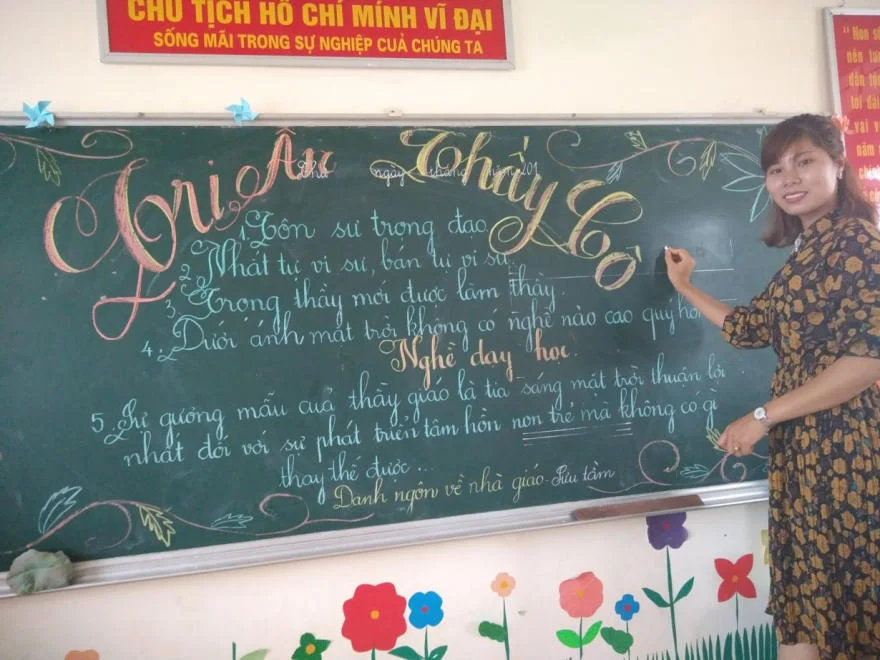 CHỦ TỊCH HỒ CHÍ MINH VĨ ĐẠI
SỐNG MÃI TRONG SỰ NGHIỆP CUẢ CHÚNG TA
Tri Ân Thầy Cô
Thứ ngày tháng năm 201
1. Tôn sư trọng đạo.
2. Nhất tự vi sư, bán tự vi sư.
3. Trọng thầy mới được làm thầy.
4. Dưới ánh mặt trời không có nghề nào cao quý hơn
Nghề dạy học.
5. Sự gương mẫu cuả thầy giáo là tia sáng mặt trời thuận lợi
nhất đối với sự phát triển tâm hồn non trẻ mà không có gì
thay thế được...
Danh ngôn về nhà giáo - Sưu tầm
"Non sô
nên tươ
dân tộ
tới đài
vai v
năm